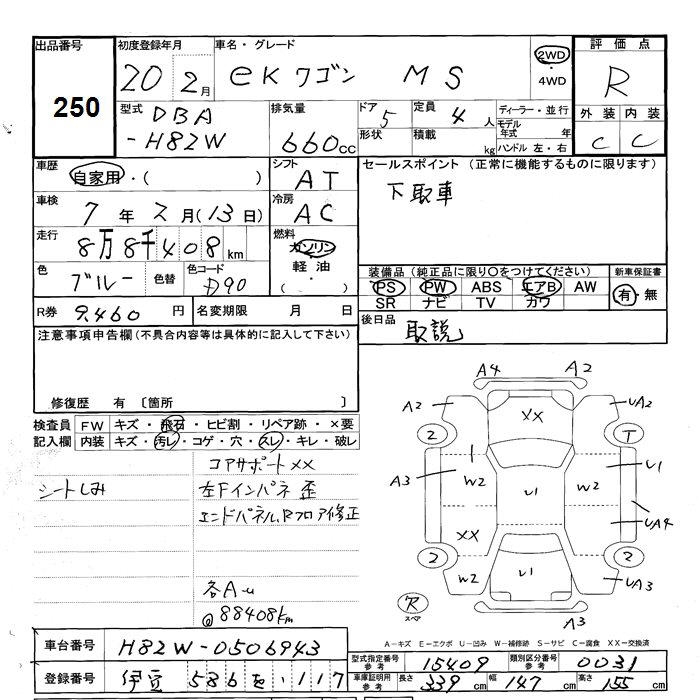 出品番号 初度登録年月 車名・グレード 評価点
250
20 2月 eKワゴン MS
2WD
・4WD
R
型式 DBA
-H82W
排気量
660cc
ドア 5 定員 4人
形状 積載 kg
ディーラー・並行
モデル年式 年
ハンドル 左・右
外装 内装
C C
車歴 自家用・( )
シフト AT
セールスポイント(正常に機能するものに限ります)
下取車
車検 7年2月(13日)
冷房 AC
走行 8万8千408km
燃料 ガソリン
軽油
・( )
色 ブルー 色替 色コード D90
装備品(純正品に限り○をつけてください) 新車保証書
PS PW ABS エアB AW
SR ナビ TV カワ
有・無
R券 9,460円 名変期限 月 日
後日品 取説
注意事項申告欄(不具合内容等は具体的に記入して下さい)
修復歴 有〔箇所 〕
検査員 FW キズ・飛石・ヒビ割・リペア跡・×要
記入欄 内装 キズ・汚レ・コゲ・穴・スレ・キレ・破レ
コアサポートXX
シートしみ 左Fインパネ歪
エンドパネル、Rフロア修正
各A-u
@88408km
A4 A2
A2 XX UA2
2 T
A3 W2 U1 W2 U1
XX UA4
2 2
W2 U1 UA3
スペア A3
A-キズ E-エクボ U-凹み W-補修跡 S-サビ C-腐食 XX-交換済
車台番号 H82W-0506943
型式指定番号 参考 15409 類別区分番号 参考 0031
登録番号 伊豆 586 を・117
車庫証明用 参考 長さ 339cm 幅 147cm 高さ 155cm